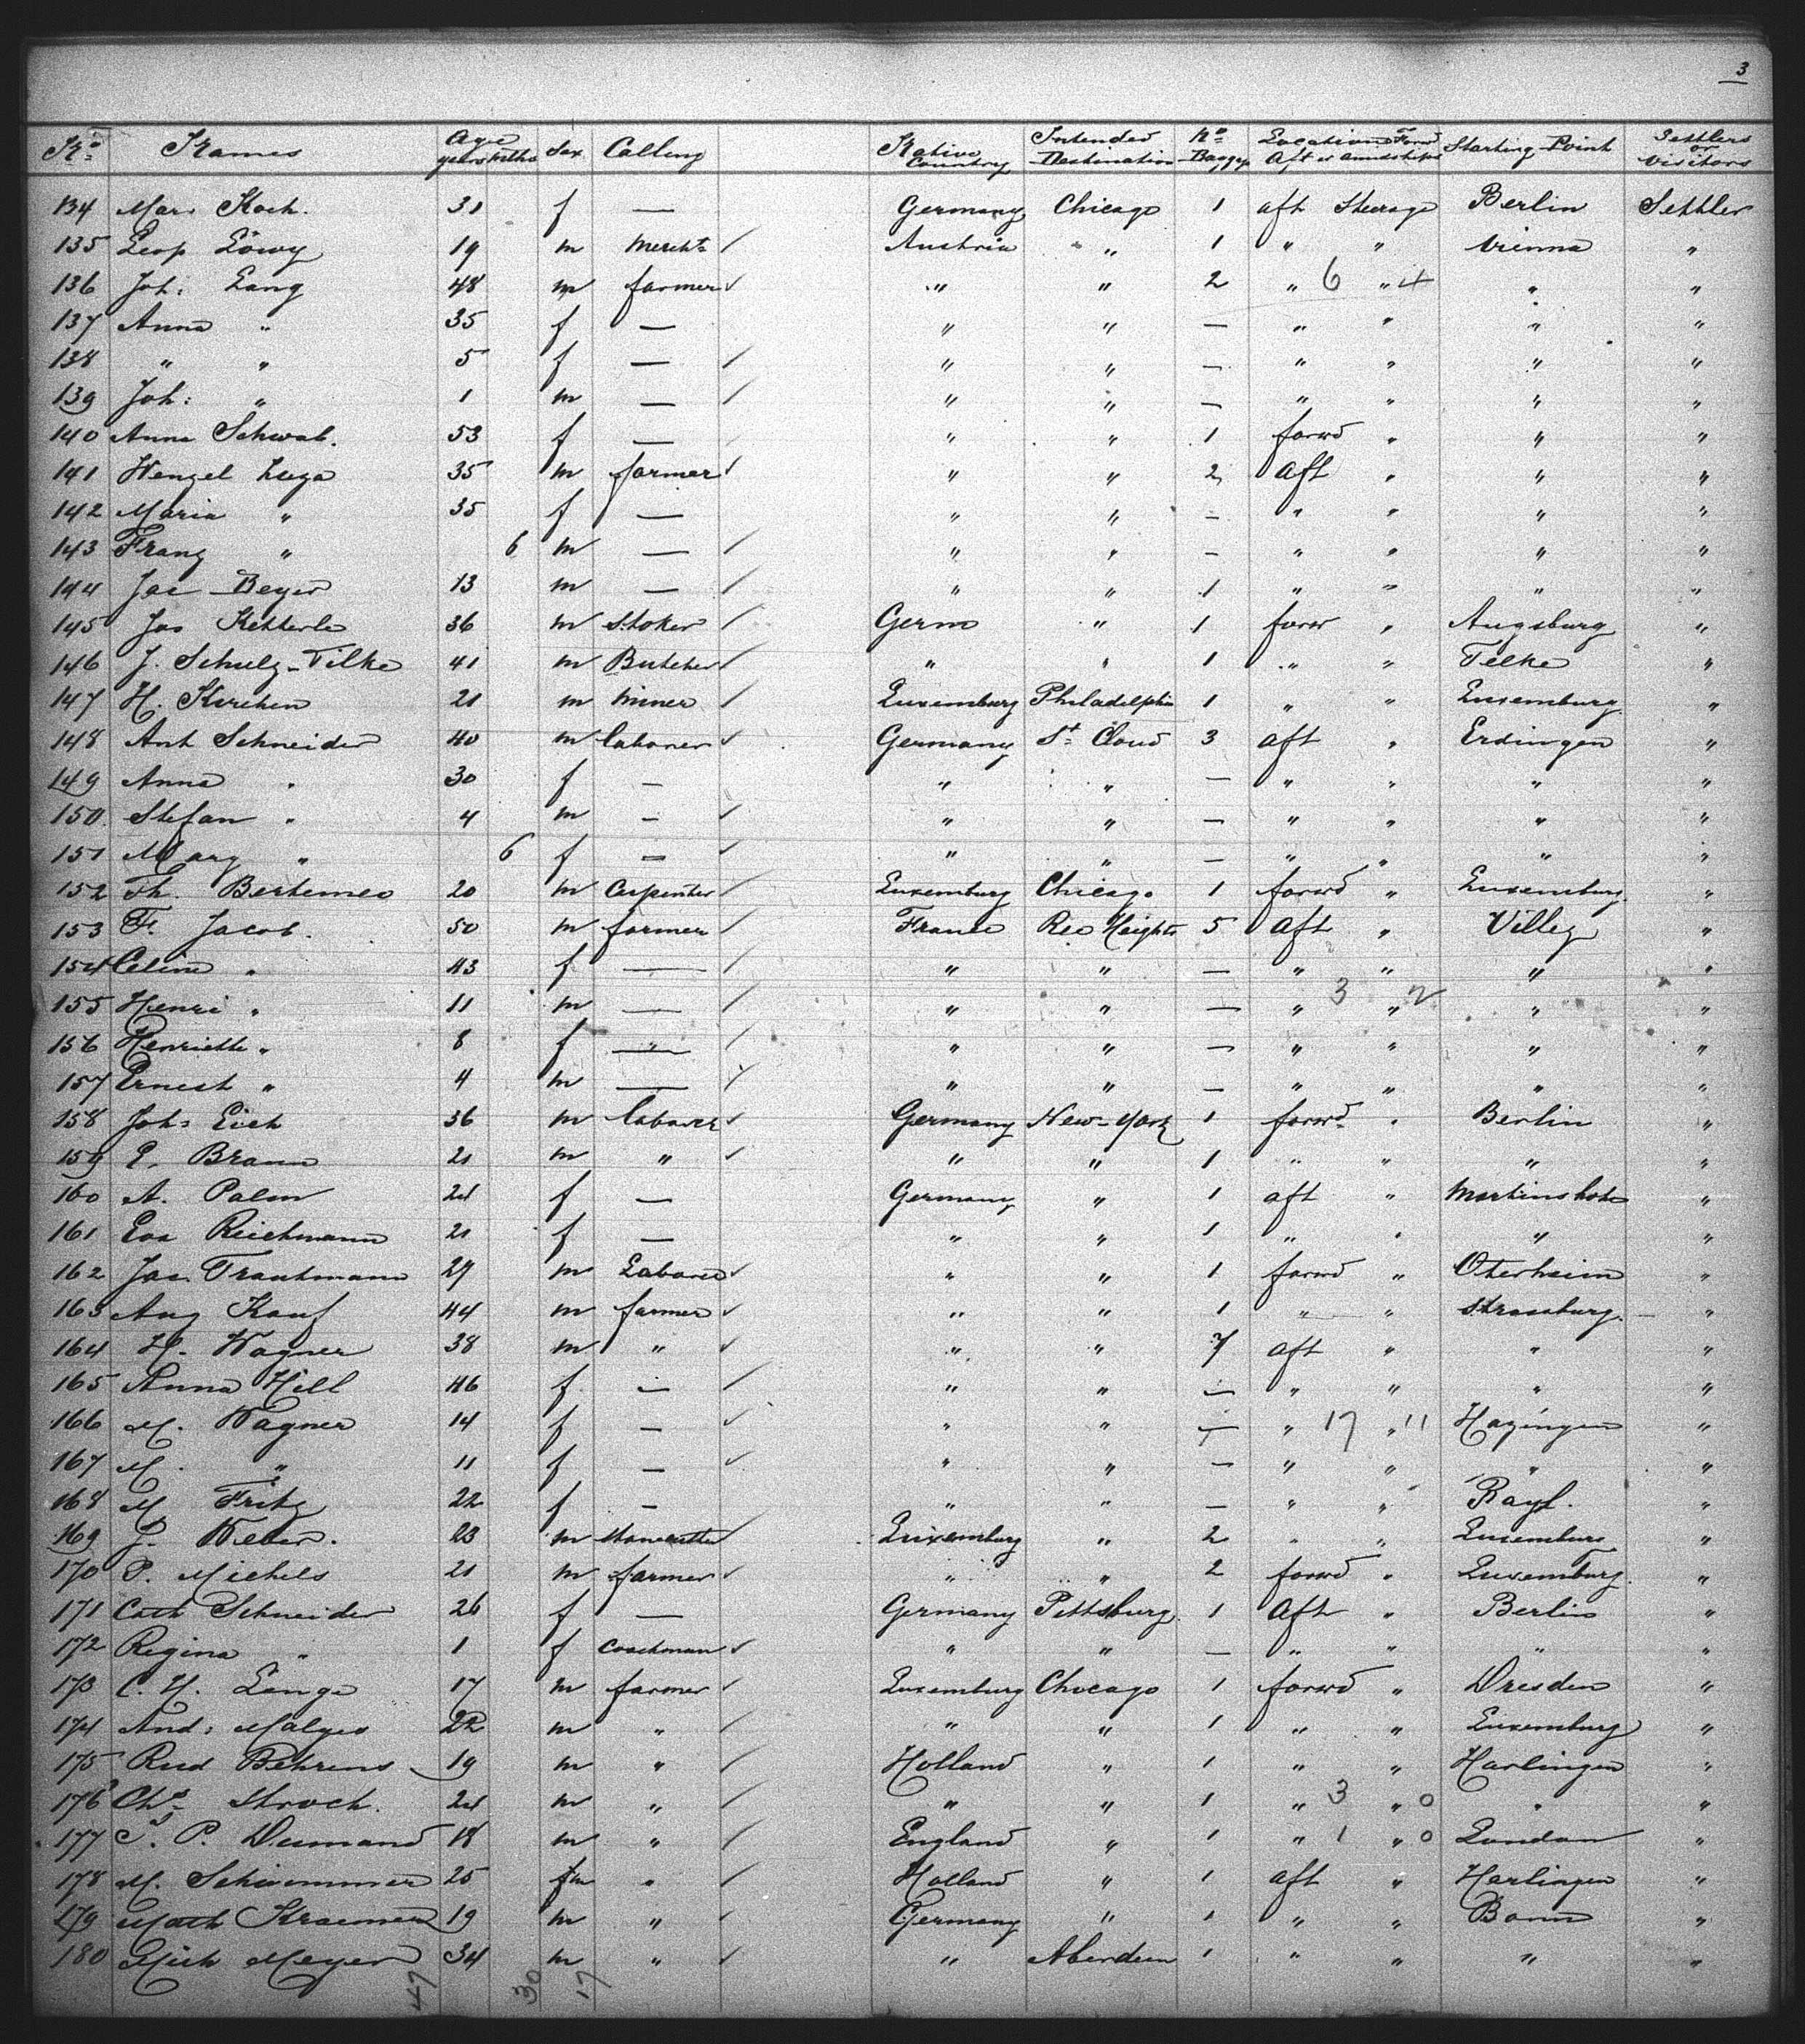 3
No Names Age years mths Sex Calling Native Country Intended Destination No Baggage Location Forwd Aft or Amidships Starting Point Settlers or Visitors
134 Mar. Koch. 31 f — Germany Chicago 1 aft Steerage Berlin Settler
135 Leop Löwy 19 m Mercht " Austria " 1 " " Vienna "
136 Joh: Lang 48 m farmer " " 2 " 6 " 4 " "
137 Anna " 35 f — " " — " " " "
138 " " 5 f — " " — " " " "
139 Joh: " 1 m — " " — " " " "
140 Anna Schwab. 53 f — " " 1 forwd " " "
141 Wenzel 35 m farmer " " 2 aft " " "
142 Maria " 35 f — " " — " " " "
143 Franz " 6 m — " " — " " " "
144 Jac Beyer 13 m — " " 1 " " " "
145 Jos Ketterle 36 m Stoker Germ " 1 forw " Augsburg "
146 J. Schulz-Tilke 41 m Butcher " " 1 " " Telke "
147 H. Kirchen 21 m miner Luxemburg Philadelphia 1 " " Luxemburg "
148 Ant Schneider 40 m laborer Germany St Cloud 3 aft " Erdingen "
149 Anna " 30 f — " " — " " " "
150. Stefan " 4 m — " " — " " " "
151 Marg " 6 f — " " — " " " "
152 Th. 20 m Carpenter Luxemburg Chicago 1 forwd " Luxemburg "
153 F. Jacob. 50 m farmer France Ree Heights 5 aft " "
154 Celine " 43 f — " " — " " " "
155 Henri " 11 m — " " — " 3 " 2 " "
156 Henriette " 8 f — " " — " " " "
157 Ernest " 4 m — " " — " " " "
158 Joh: Eich 36 m laborer Germany New-York 1 forwd " Berlin "
159 E. Braun 21 m " " " 1 " " " "
160 A. Palm 24 f — Germany " 1 aft " "
161 Eva Reichmann 21 f — " " 1 " " " "
162 Jac. Trautmann 29 m Laborer " " 1 forwd " Oterheim "
163 Aug Kauf 44 m farmer " " 1 " " Strassburg. "
164 H. Wagner 38 m " " " 7 aft " " "
165 Anna Hill 46 f — " " — " " " "
166 M. Wagner 14 f — " " — " 17 " 11 Hazingen "
167 M. " 11 f — " " — " " " "
168 M Fritz 22 f — " " — " " "
169 J. Weber. 23 m stonecutter Luxemburg " 2 " " Luxemburg "
170 P. Michels 21 m farmer " " 2 forwd " Luxemburg. "
171 Cath Schneider 26 f — Germany Pittsburg. 1 aft " Berlin "
172 Regina " 1 f coachman " " — " " " "
173 C. H. Lange 17 m farmer Luxemburg Chicago 1 forwd " Dresden "
174 And: 22 m " " " 1 " " Luxemburg "
175 Rud Behrens 19 m " Holland " 1 " " Harlingen "
176 Chs Stroch. 24 m " " " 1 " 3 " 0 " "
177 P. 18 m " England " 1 " 1 " 0 London "
178 M. Schwemmer 25 fm " Holland " 1 aft " Harlingen "
179 Math Kraemer 19 m " Germany " 1 " " Bonn "
180 Mich Meyer 34 m " " Aberdeen 1 " " " "
47 30 17